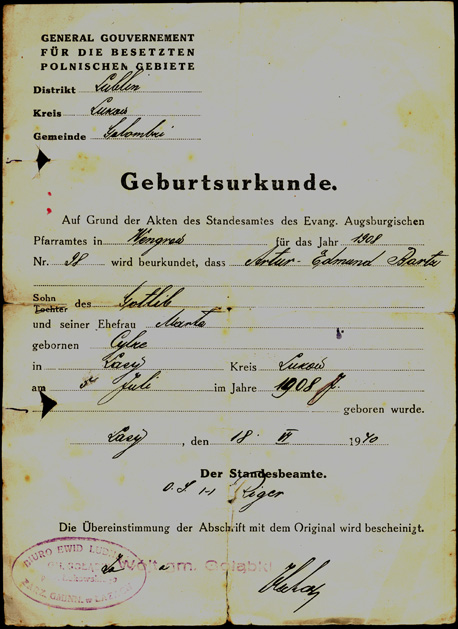 GENERAL GOUVERNEMENT
FÜR DIE BESETZTEN
POLNISCHEN GEBIETE
Distrikt Lublin
Kreis Lukow
Gemeinde
Geburtsurkunde.
Auf Grund der Akten des Standesamtes des Evang. Augsburgischen
Pfarramtes in Wengrow für das Jahr 1908
Nr. 98 wird beurkundet, dass Artur-Edmund
Sohn
Tochter des Gotlib
und seiner Ehefrau Marta
gebornen Cylke
in Lazy Kreis Lukow
am Juli im Jahre 1908
geboren wurde.
Lazy, den 18. VI 1940
Der Standesbeamte.
Die Übereinstimmung der Abschrift mit dem Original wird bescheinigt.
BIURO EWID LUDN
Wójt gm. Gołąbki